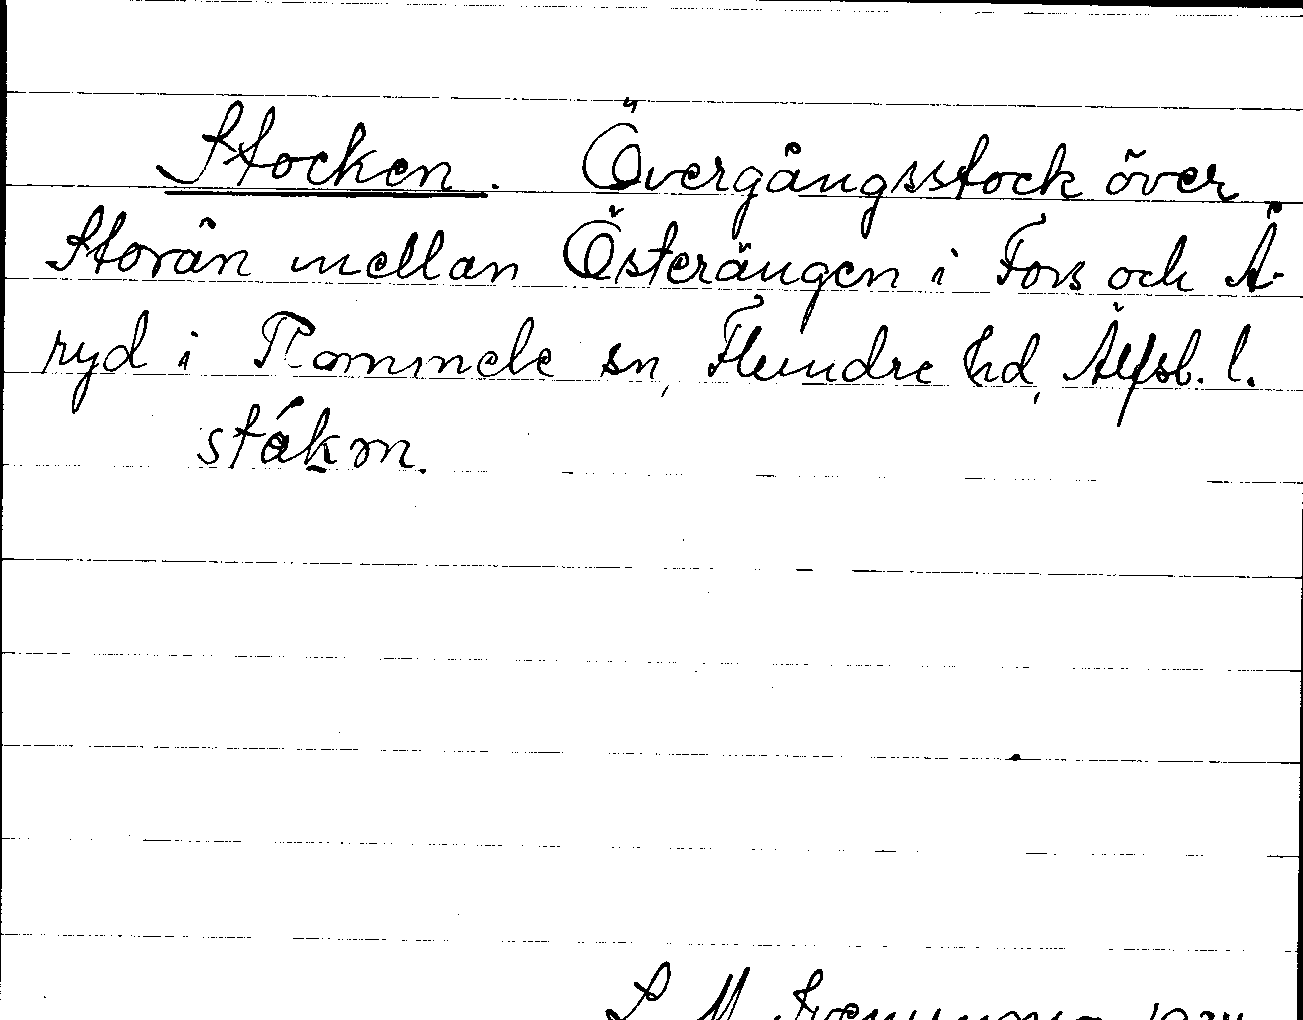 Stocken. Övergångsstock över
Storån mellan Österängen i Fors och Å-
ryd i Rommele sn, Flundre hd, Älfsb. l.
ståkm.
S M Svensson 1934